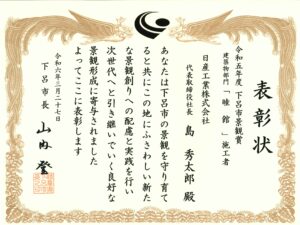 表彰状
令和五年度 下呂市景観賞
建築物部門「曈 館」施工者
日産工業株式会社
代表取締役社長 島 秀太郎 殿
あなたは下呂市の景観を守り育て
ると共にこの地にふさわしい新た
な景観創りへの配慮と実践を行い
次世代へと引き継いでいく良好な
景観形成に寄与されました
よってここに表彰します
令和六年三月二十七日
下呂市長 山内 登